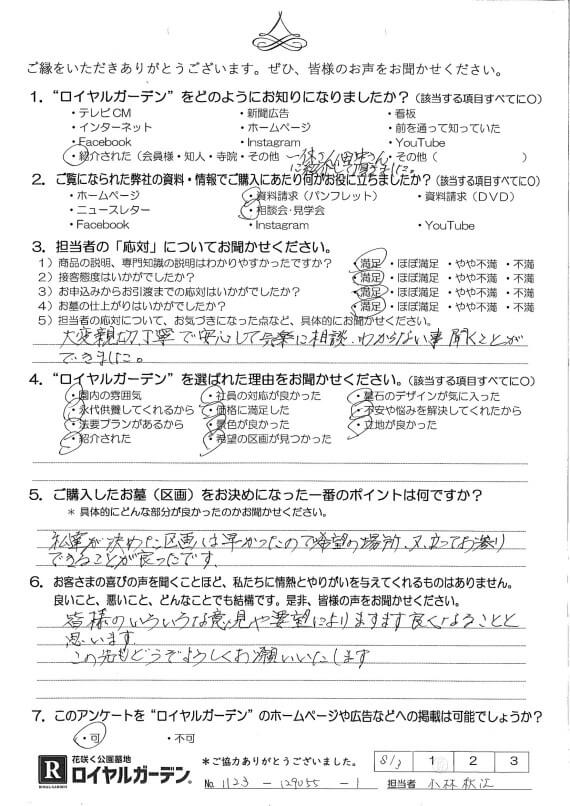 ご縁をいただきありがとうございます。ぜひ、皆様のお声をお聞かせください。
1. “ロイヤルガーデン”をどのようにお知りになりましたか?(該当する項目すべてに○)
・テレビCM ・新聞広告 ・看板
・インターネット ・ホームページ ・前を通って知っていた
・Facebook ・Instagram ・YouTube
・紹介された(会員様・知人・寺院・その他 ・その他( )
に紹介して頂きました。
2. ご覧になられた弊社の資料・情報でご購入にあたり何がお役に立ちましたか?(該当する項目すべてに○)
・ホームページ ・資料請求(パンフレット) ・資料請求(DVD)
・ニュースレター ・相談会・見学会
・Facebook ・Instagram ・YouTube
3. 担当者の「応対」についてお聞かせください。
1)商品の説明、専門知識の説明はわかりやすかったですか? ・満足 ・ほぼ満足 ・やや不満 ・不満
2)接客態度はいかがでしたか? ・満足 ・ほぼ満足 ・やや不満 ・不満
3)お申込みからお引渡までの応対はいかがでしたか? ・満足 ・ほぼ満足 ・やや不満 ・不満
4)お墓の仕上がりはいかがでしたか? ・満足 ・ほぼ満足 ・やや不満 ・不満
5)担当者の応対について、お気づきになった点など、具体的にお聞かせください。
大変親切丁寧で安心して気楽に相談、わからない事聞くことが
できました。
4. “ロイヤルガーデン”を選ばれた理由をお聞かせください。(該当する項目すべてに○)
・園内の雰囲気 ・社員の対応が良かった ・墓石のデザインが気に入った
・永代供養してくれるから ・価格に満足した ・不安や悩みを解決してくれたから
・法要プランがあるから ・景色が良かった ・立地が良かった
・紹介された ・希望の区画が見つかった
5. ご購入したお墓(区画)をお決めになった一番のポイントは何ですか?
*具体的にどんな部分が良かったのかお聞かせください。
私達が決めた区画は早かったので希望の場所、又、立ってお参り
できることが良ったです。
6. お客さまの喜びの声を聞くことほど、私たちに情熱とやりがいを与えてくれるものはありません。
良いこと、悪いこと、どんなことでも結構です。是非、皆様の声をお聞かせください。
皆様のいろいろな意見や要望によりますます良くなることと
思います。
この先もどうぞよろしくお願いいたします
7. このアンケートを“ロイヤルガーデン”のホームページや広告などへの掲載は可能でしょうか?
・可 ・不可
花咲く公園墓地
R ロイヤルガーデン®
ROYAL GARDEN
*ご協力ありがとうございました。 8/3 1 2 3
No. 1123-129055-1 担当者 小林